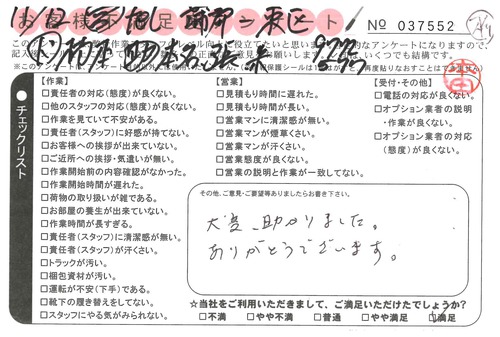 お客様 満足 アンケート
No 037552
11/12
東区
【作業】
□責任者の対応(態度)が良くない。
□他のスタッフの対応(態度)が良くない。
□作業を見ていて不安がある。
□責任者(スタッフ)に好感が持てない。
□お客様への挨拶が出来ていない。
□ご近所への挨拶・気遣いが無い。
□作業開始前の内容確認がなかった。
□作業開始時間が遅れた。
□荷物の取り扱いが雑である。
□お部屋の養生が出来ていない。
□作業時間が長すぎる。
□責任者(スタッフ)に清潔感が無い。
□責任者(スタッフ)が汗くさい。
□トラックが汚い。
□梱包資材が汚い。
□運転が不安(下手)である。
□靴下の履き替えをしてない。
□スタッフにやる気がみられない。
【営業】
□見積もり時間に遅れた。
□見積もり時間が長い。
□営業マンに清潔感が無い。
□営業マンが煙草くさい。
□営業マンが汗くさい。
□営業態度が良くない。
□営業の説明と作業が一致してない。
【受付・その他】
□電話の対応が良くない。
□オプション業者の説明
・作業が良くない。
□オプション業者の対応
(態度)が良くない。
チェックリスト
その他、ご意見・ご要望等ありましたらお書き下さい。
大変助かりました。
ありがとうございます。
☆当社をご利用いただきまして、ご満足いただけたでしょうか?
□不満 □やや不満 □普通 □やや満足 □満足